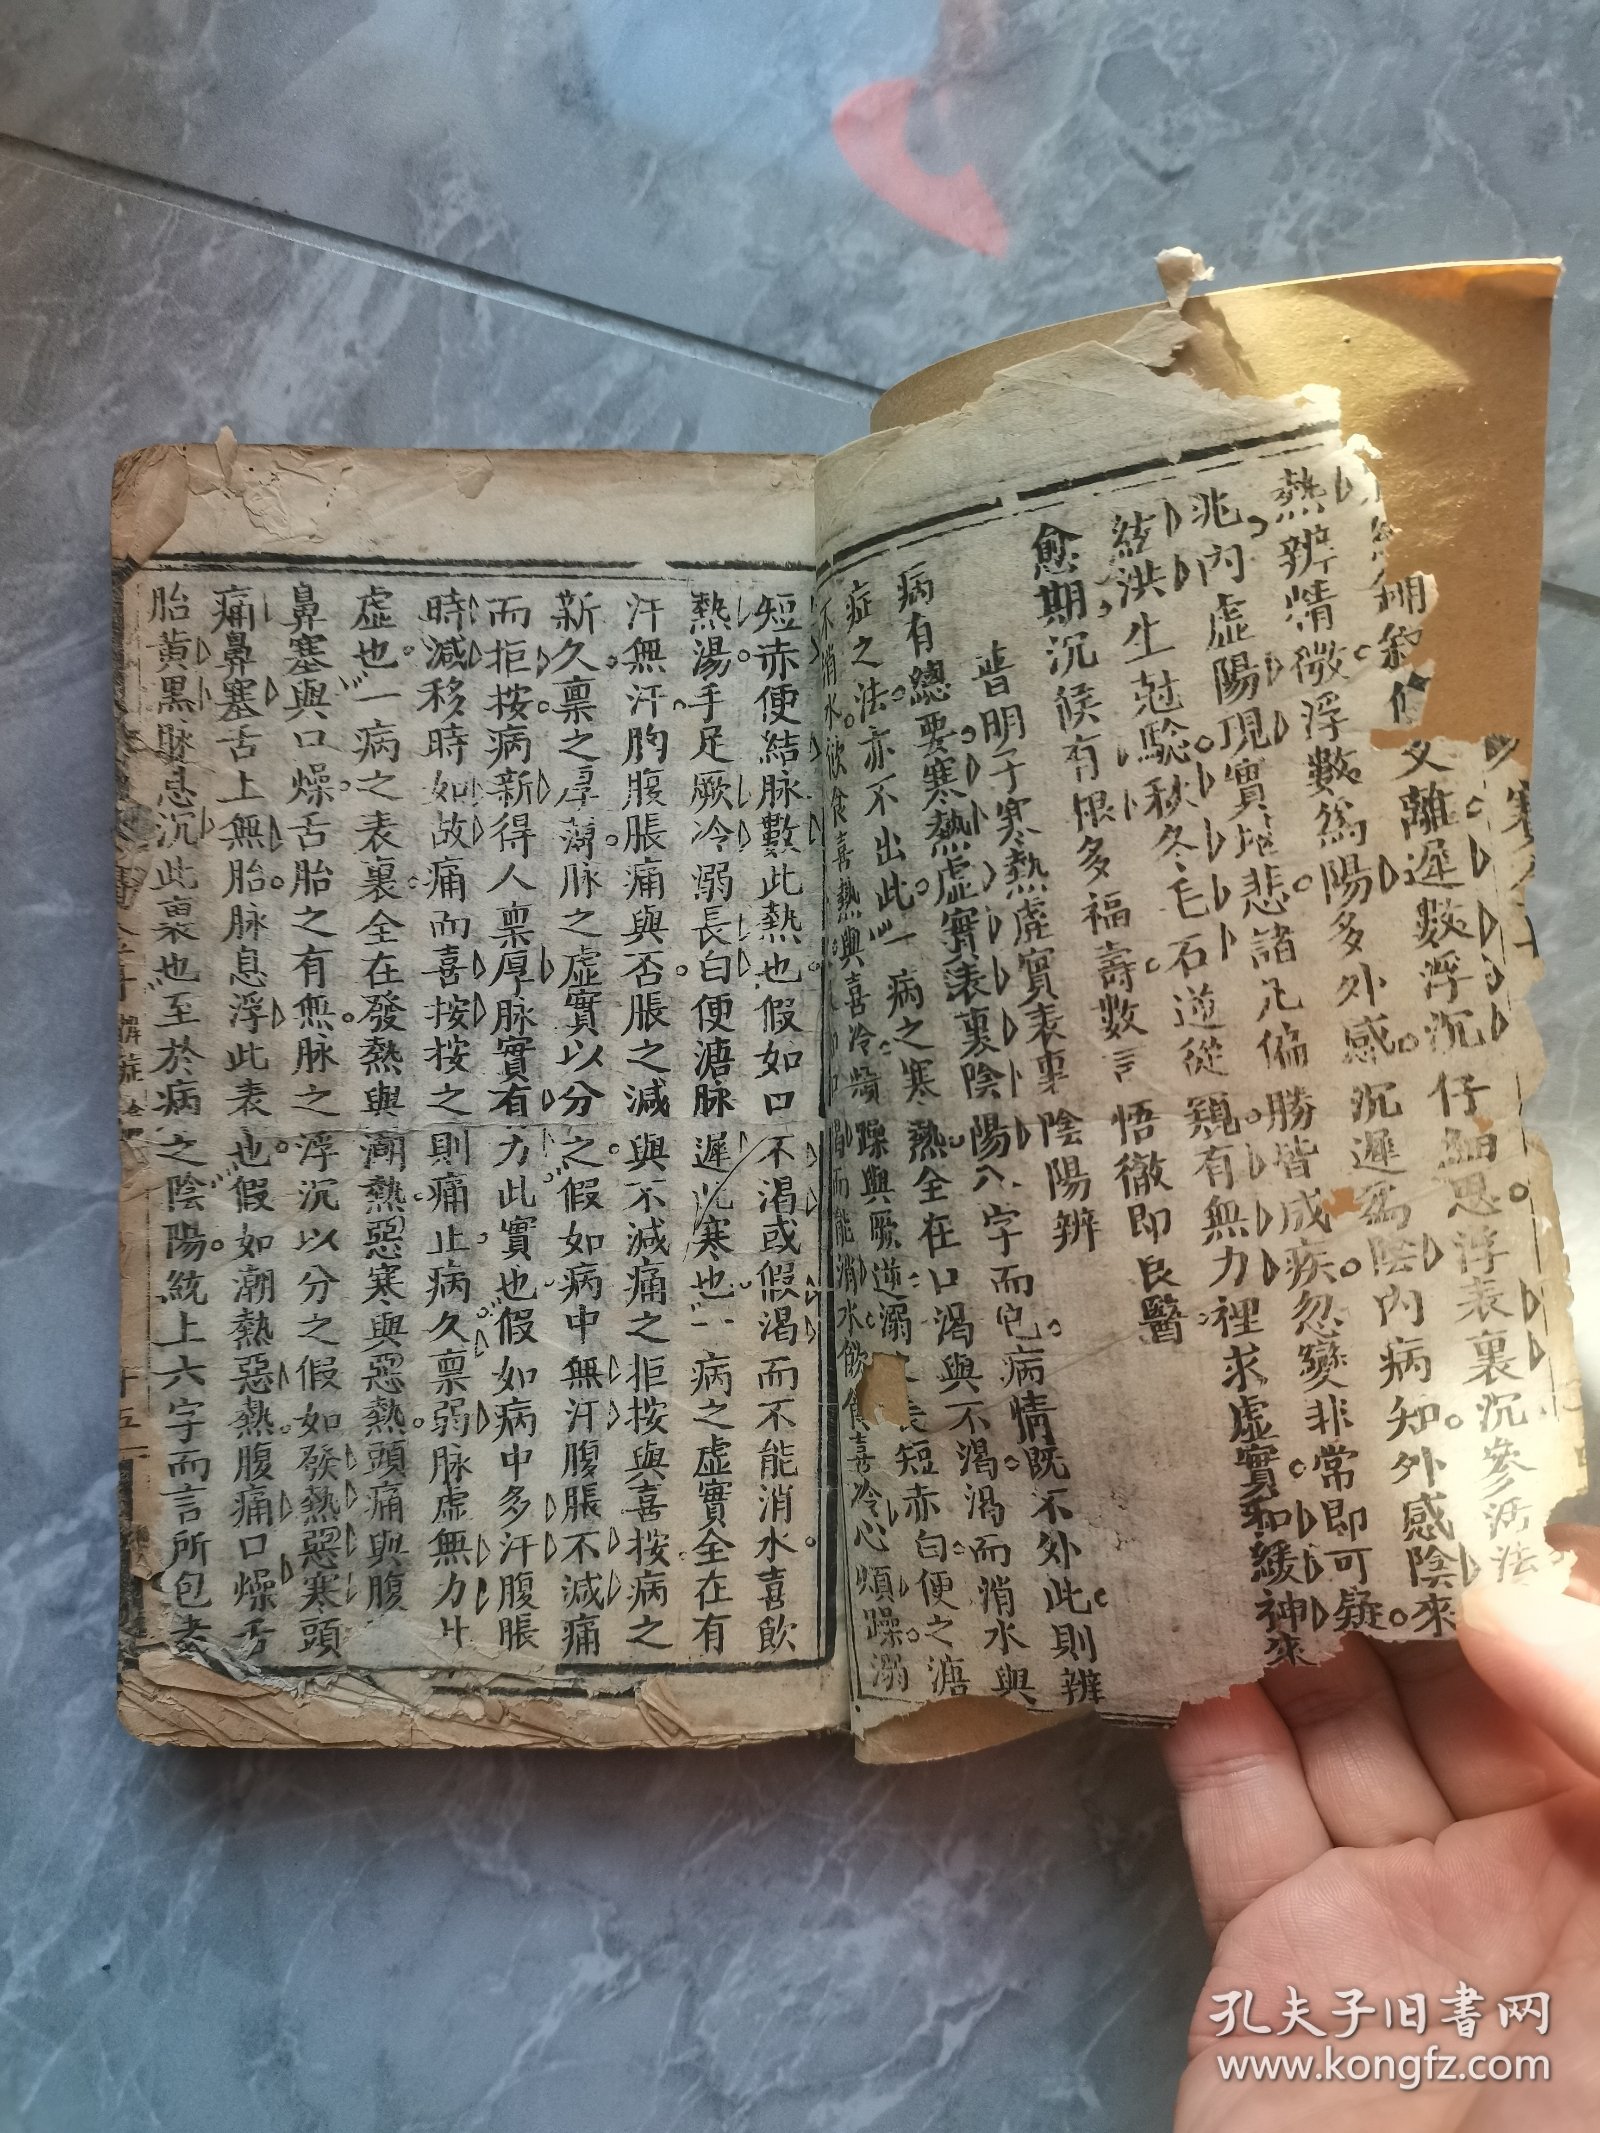 熱辨精微浮數爲陽多外感沉遲爲陰內病知外感陰來
兆內虛陽現實堪悲諸凡偏勝皆成疾忽變非常即可疑
絃洪生尅驗秋冬毛石逆從窺有無力裡求虛實和緩神來
愈期沉候有根多福壽數言悟徹即良醫
普明子寒熱虛實表裏陰陽辨
病有總要寒熱虛實表裏陰陽八字而已病情既不外此則辨
症之法亦不出此一病之寒熱全在口渴與不渴渴而消水與
不消水飲食喜熱與喜冷煩躁與厥逆溺之長短赤白便之溏
渴而能消水飲食喜冷心煩躁溺
短赤便結脉數此熱也假如口不渴或假渴而不能消水喜飲
熱湯手足厥冷溺長白便溏脉遲此寒也一病之虛實全在有
汗無汗胸腹脹痛與否脹之減與不減痛之拒按與喜按病之
新久禀之厚薄脉之虛實以分之假如病中無汗腹脹不減痛
而拒按病新得人禀厚脉實有力此實也假如病中多汗腹脹
時減移時如故痛而喜按按之則痛止病久禀弱脉虛無力此
虛也一病之表裏全在發熱與潮熱惡寒與惡熱頭痛與腹
鼻塞與口燥舌胎之有無脉之浮沉以分之假如發熱惡寒頭
痛鼻塞舌上無胎脉息浮此表也假如潮熱惡熱腹痛口燥舌
胎黃黑脉息沉此裏也至於病之陰陽統上六字而言所包者
孔夫子旧书网
www.kongfz.com